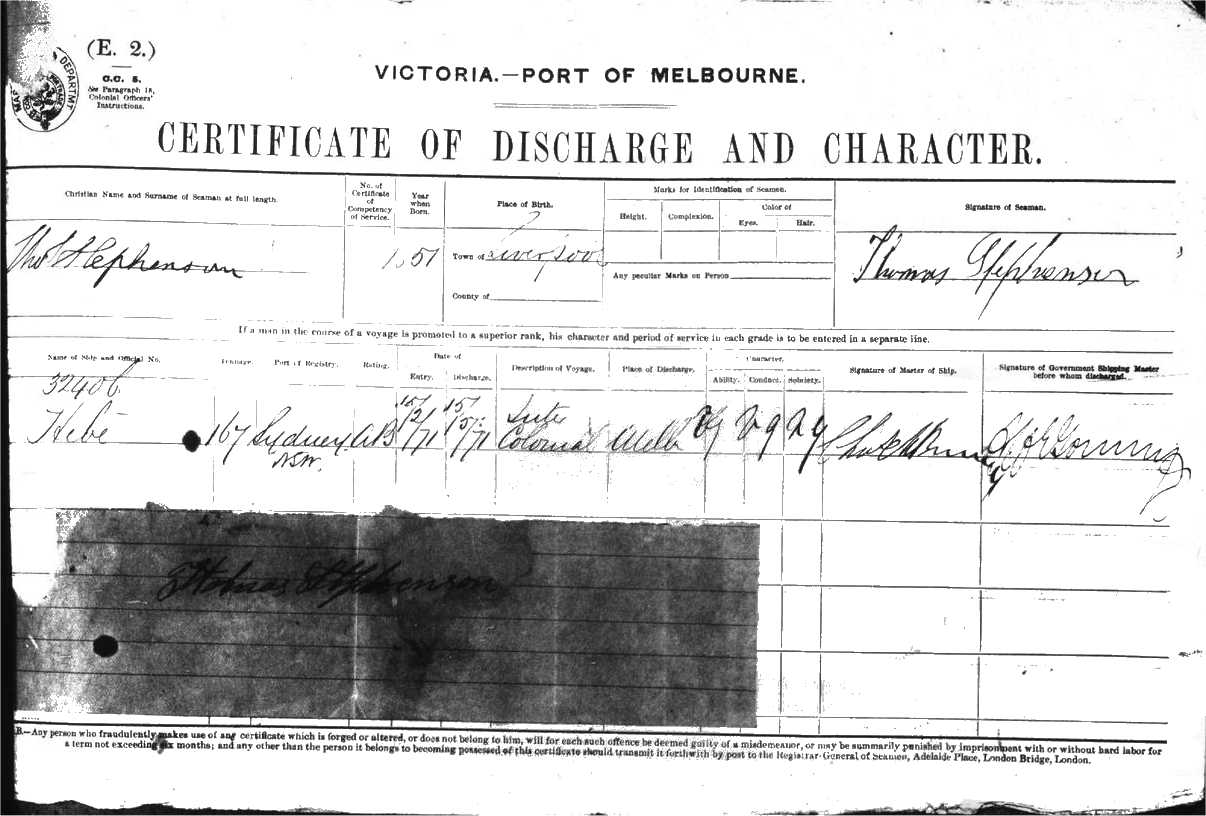 (E. 2.)
C.C. 8.
See Paragraph 18,
Colonial Officers'
Instructions.
VICTORIA.—PORT OF MELBOURNE.
CERTIFICATE OF DISCHARGE AND CHARACTER.
Christian Name and Surname of Seaman at full length.
No. of Certificate of Competency of Service.
Year when Born.
Place of Birth.
Marks for Identification of Seamen.
Height.
Complexion.
Color of
Eyes.
Hair.
Signature of Seaman.
Thos Stephenson
1851
Town of Liverpool
County of
Any peculiar Marks on Person
Thomas Stephenson
If a man in the course of a voyage is promoted to a superior rank, his character and period of service in each grade is to be entered in a separate line.
Name of Ship and Official No.
Tonnage.
Port of Registry.
Rating.
Date of
Entry.
Discharge.
Description of Voyage.
Place of Discharge.
Character.
Ability.
Conduct.
Sobriety.
Signature of Master of Ship.
Signature of Government Shipping Master before whom discharged.
32406
Hebe
167
Sydney
NSW.
AB
15/2/71
15/5/71
Inter
Colonial
Melb
Vg
Vg
Vg
Thomas Stephenson
B.—Any person who fraudulently makes use of any certificate which is forged or altered, or does not belong to him, will for each such offence be deemed guilty of a misdemeanor, or may be summarily punished by imprisonment with or without hard labor for
a term not exceeding six months; and any other than the person it belongs to becoming possessed of this certificate should transmit it forthwith by post to the Registrar-General of Seamen, Adelaide Place, London Bridge, London.